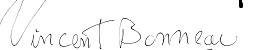 Vincent Bonneau